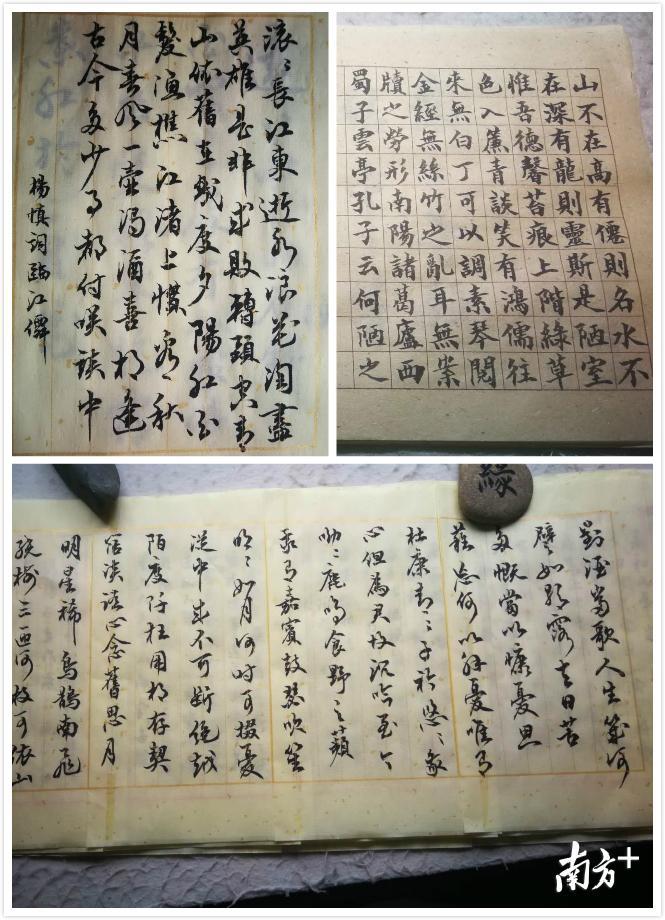 滚〻長江東逝水浪花淘盡
英雄是非成敗轉頭空青
山依舊在幾度夕陽紅白
髮漁樵江渚上慣看秋
月春風一壺濁酒喜相逢
古今多少事都付笑談中
楊慎詞臨江僊
山不在高有僊則名水不
在深有龍則靈斯是陋室
惟吾德馨苔痕上階綠草
色入簾青談笑有鴻儒往
來無白丁可以調素琴閱
金經無絲竹之亂耳無案
牘之勞形南陽諸葛廬西
蜀子雲亭孔子云何陋之
緣
對酒當歌人生幾何
譬如朝露去日苦
多慨當以慷憂思
難忘何以解憂唯有
杜康青〻子衿悠〻我
心但為君故沉吟至今
呦〻鹿鳴食野之蘋
我有嘉賓鼓瑟吹笙
明〻如月何時可掇憂
從中來不可斷絕越
陌度阡枉用相存契
闊談讌心念舊恩月
明星稀烏鵲南飛
繞樹三匝何枝可依山
南方+